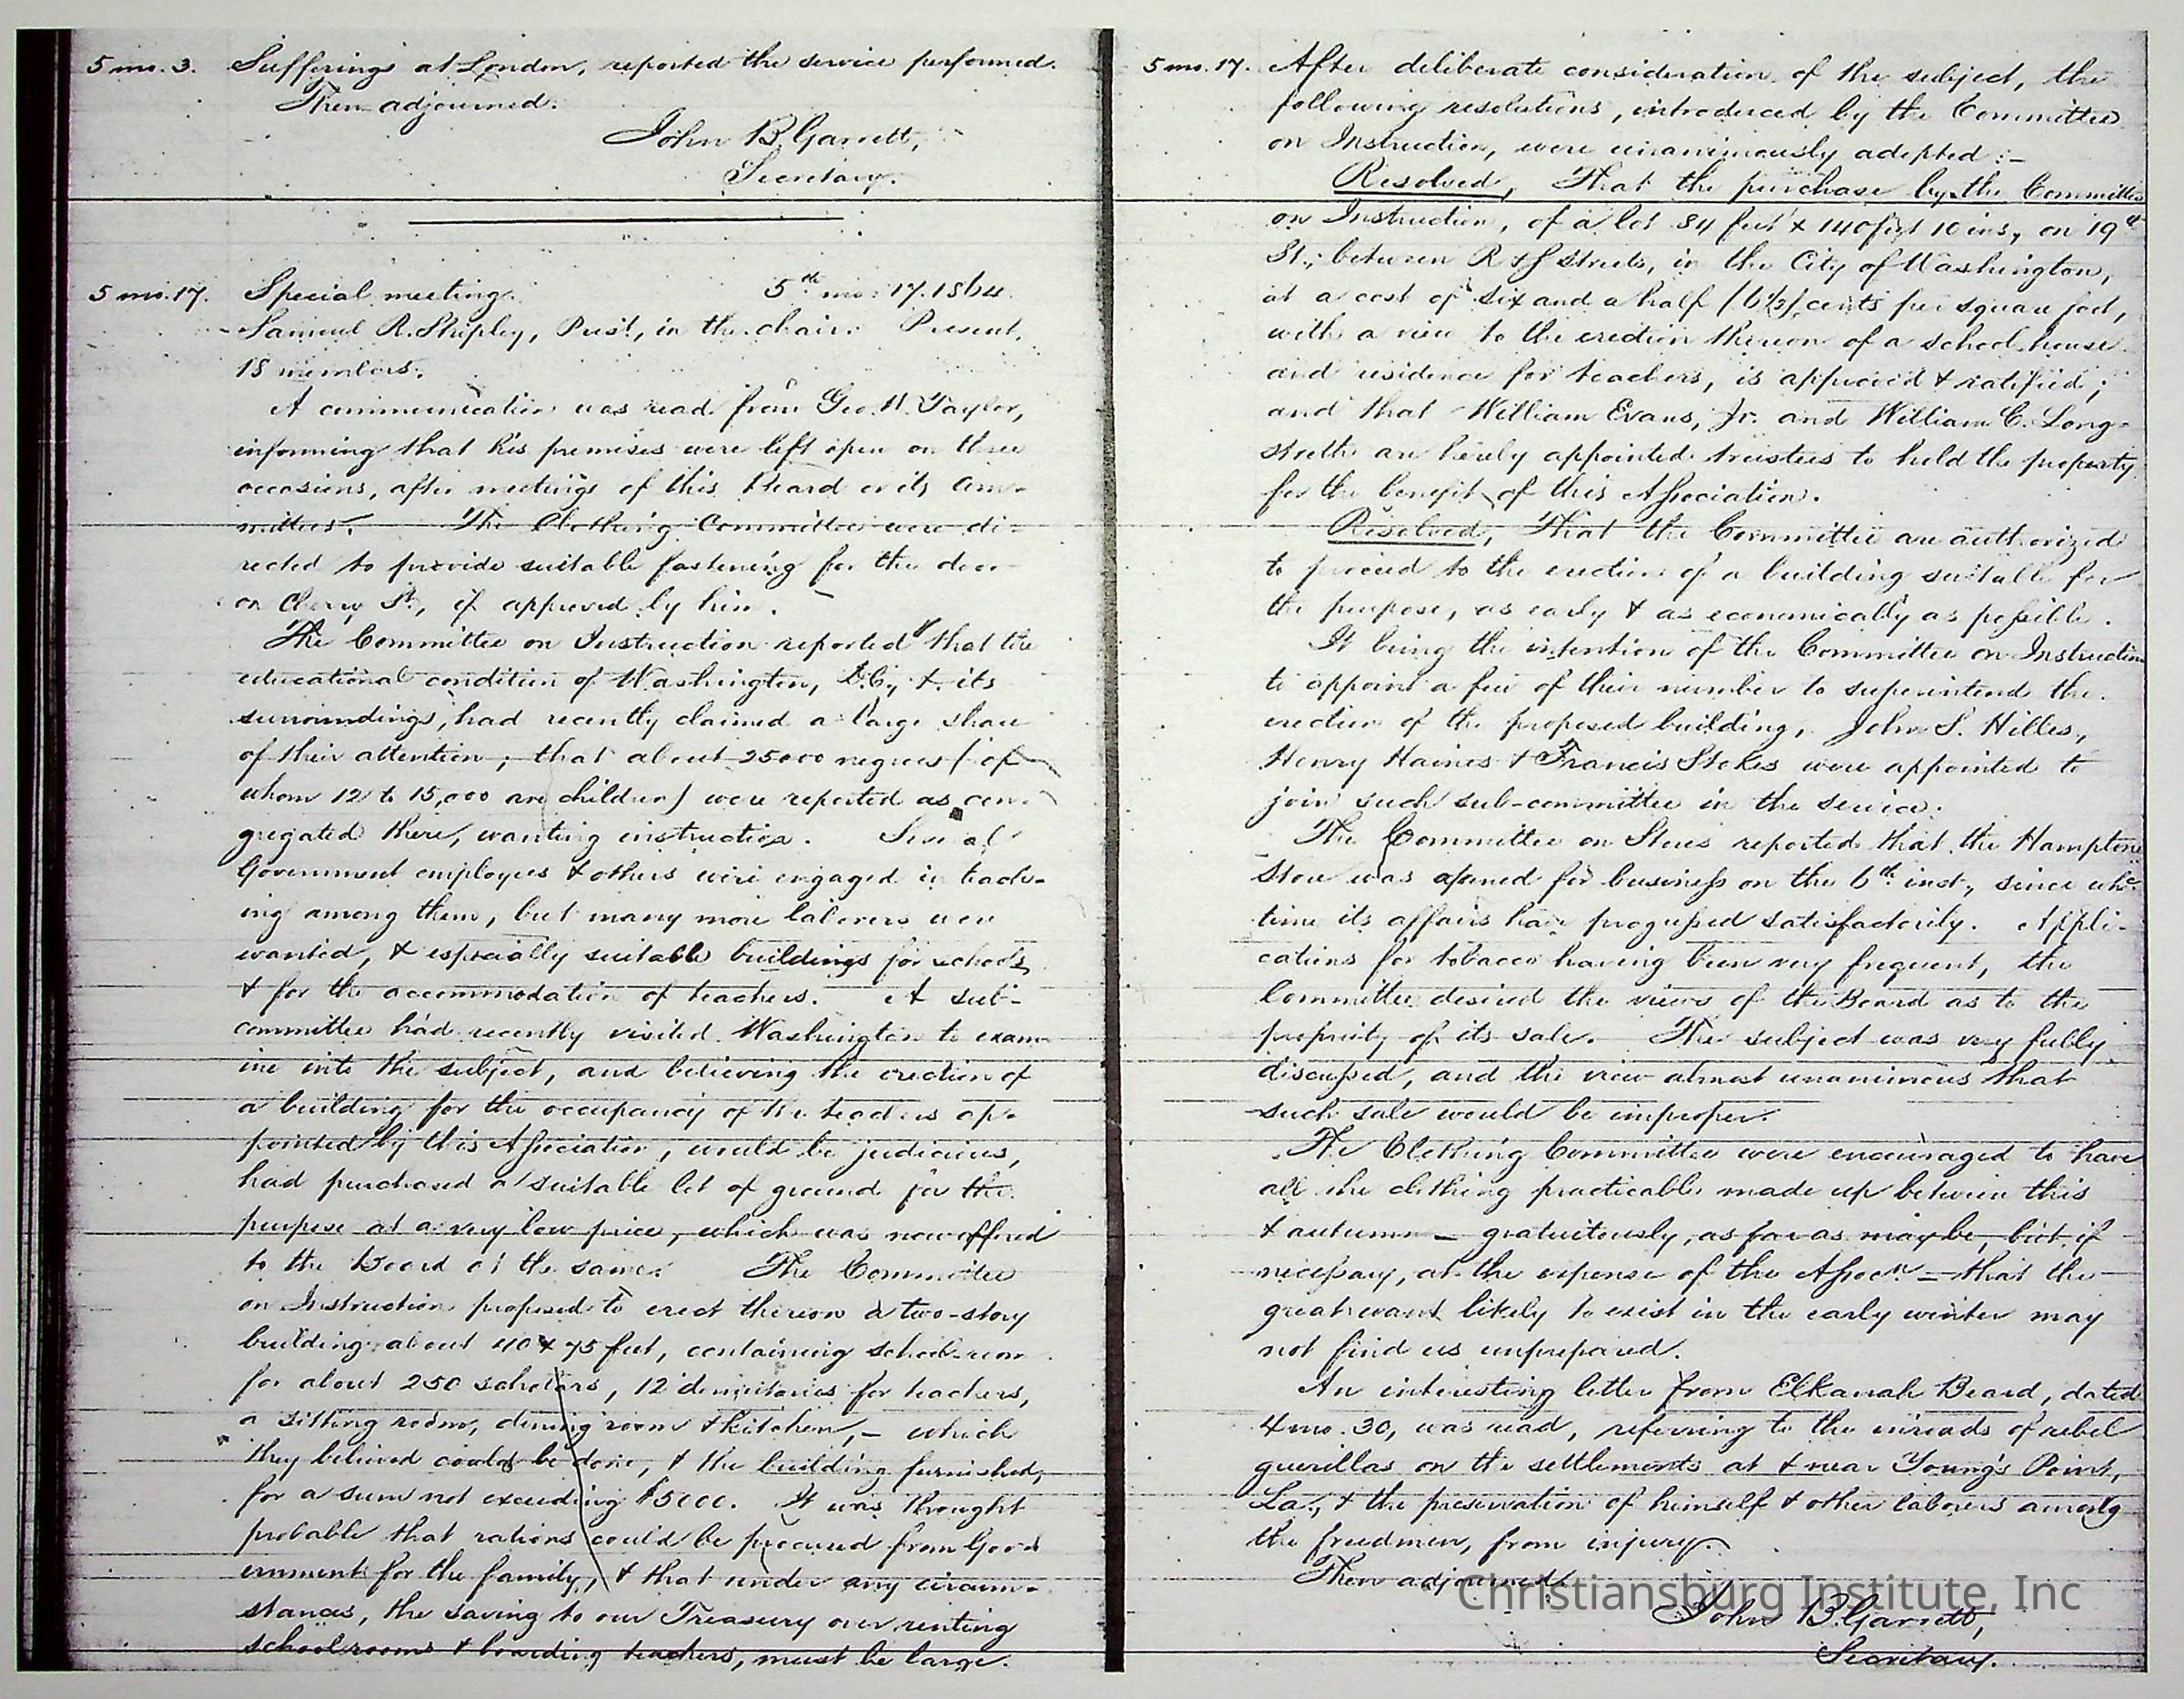 5 mo. 3. Sufferings at London, reported the service performed.
Then adjourned.
John B. Garrett,
Secretary.
5 mo. 17. Special meeting. 5th mo. 17. 1864.
Samuel R. Shipley, Prest, in the chair. Present,
18 members.
A communication was read from Geo. W. Taylor,
informing that his premises were left open on three
occasions, after meetings of this Board or its Com-
mittees. The Clothing Committee were di-
rected to provide suitable fastening for the door
on Cherry St., if approved by him.
The Committee on Instruction reported that the
educational condition of Washington, D.C., & its
surroundings, had recently claimed a large share
of their attention; that about 25000 negroes (of
whom 12 to 15,000 are children) were reported as con-
gregated there, wanting instruction. Several
Government employees & others were engaged in teach-
ing among them, but many more laborers were
wanted, & especially suitable buildings for schools
& for the accommodation of teachers. A sub-
committee had recently visited Washington to exam-
ine into the subject, and believing the erection of
a building for the occupancy of the teachers ap-
pointed by this Association, would be judicious,
had purchased a suitable lot of ground for the
purpose at a very low price, which was now offered
to the Board at the same. The Committee
on Instruction proposed to erect thereon a two-story
building about 40 x 75 feet, containing school-room
for about 250 scholars, 12 dormitories for teachers,
a sitting room, dining room & kitchen, — which
they believed could be done, & the building furnished,
for a sum not exceeding $5000. It was thought
probable that rations could be procured from Gov-
ernment for the family, & that under any circum-
stances, the saving to our Treasury over renting
schoolrooms & boarding teachers, must be large.
5 mo. 17. After deliberate consideration of the subject, the
following resolutions, introduced by the Committee
on Instruction, were unanimously adopted:—
Resolved, That the purchase by the Committee
on Instruction, of a lot 84 feet x 140 feet 10 ins, on 19th
St., between R & S streets, in the City of Washington,
at a cost of six and a half (6 1/2) cents per square foot,
with a view to the erection thereon of a school house
and residence for teachers, is approved & ratified;
and that William Evans, Jr. and William C. Long-
streth are hereby appointed trustees to hold the property
for the benefit of this Association.
Resolved, That the Committee are authorized
to proceed to the erection of a building suitable for
the purpose, as early & as economically as possible.
It being the intention of the Committee on Instruction
to appoint a few of their number to superintend the
erection of the proposed building, John S. Hilles,
Henry Haines & Francis Stokes were appointed to
join such sub-committee in the service.
The Committee on Stores reported that the Hampton
Store was opened for business on the 6th inst, since whc
time its affairs have progressed satisfactorily. Appli-
cations for tobacco having been very frequent, the
Committee desired the views of the Board as to the
propriety of its sale. The subject was very fully
discussed, and the view almost unanimous that
such sale would be improper.
The Clothing Committee were encouraged to have
all the clothing practicable made up between this
& autumn — gratuitously, as far as may be, but if
necessary, at the expense of the Assocn — that the
great want likely to exist in the early winter may
not find us unprepared.
An interesting letter from Elkanah Beard, dated
4 mo. 30, was read, referring to the inroads of rebel
guerillas on the settlements at & near Young's Point,
La., & the preservation of himself & other laborers among
the freedmen, from injury.
Then adjourned.
John B. Garrett,
Secretary.
Christiansburg Institute, Inc